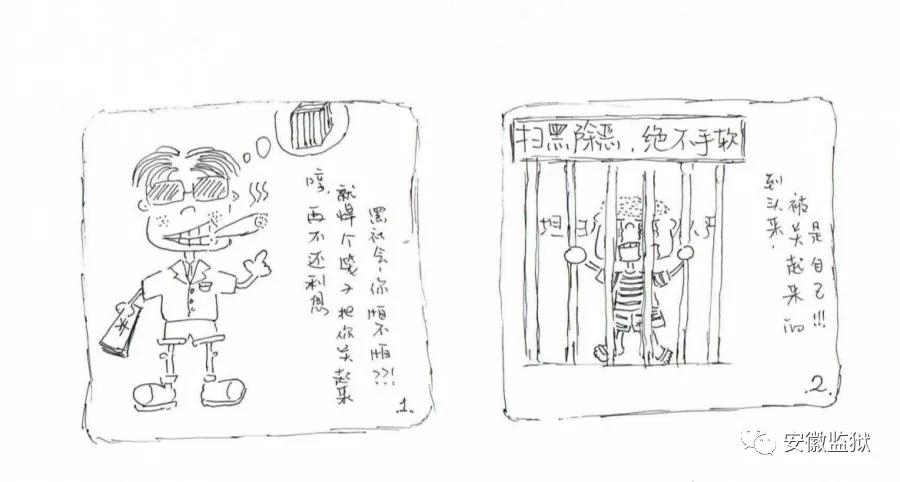 哼,再不还利息
就焊个笼子把你关起来
黑社会,你怕不怕??!
1.
扫黑除恶,绝不手软
坦
到头来,
被关起来的
是自己!!!
2.
安徽监狱